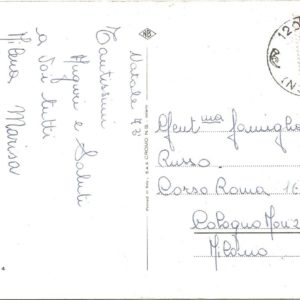 Natale 73
Tantissimi
Auguri e Saluti
a Voi tutti
Milena Marisa
Gent.ma famiglia
Russo
Corso Roma 16
Cologno Monz
Milano
4